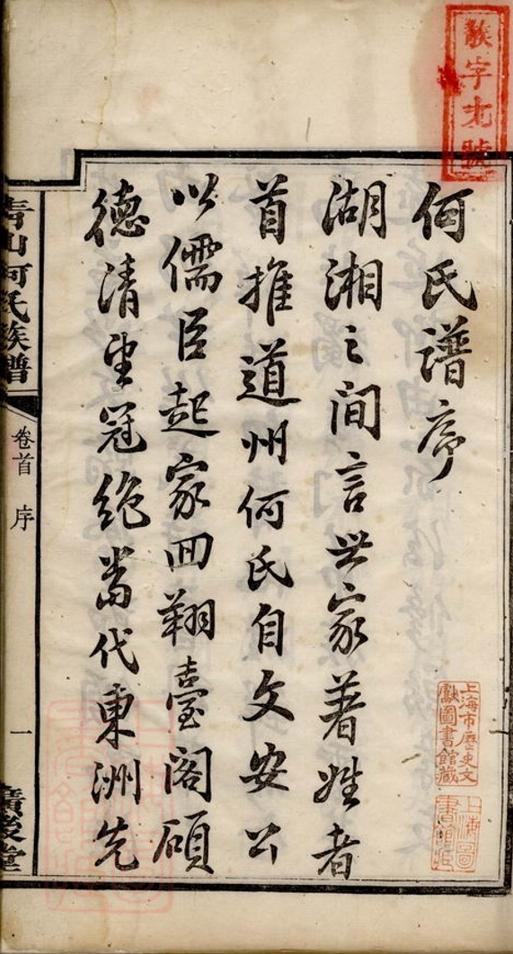 何氏譜序
湖湘之間言世家著姓者
首推道州何氏自文安公
以儒臣起家回翔臺閣碩
德清望冠絶當代東洲先
青山何氏族譜
卷首 序
一
廣發堂
上海市歷史文
獻圖書館藏